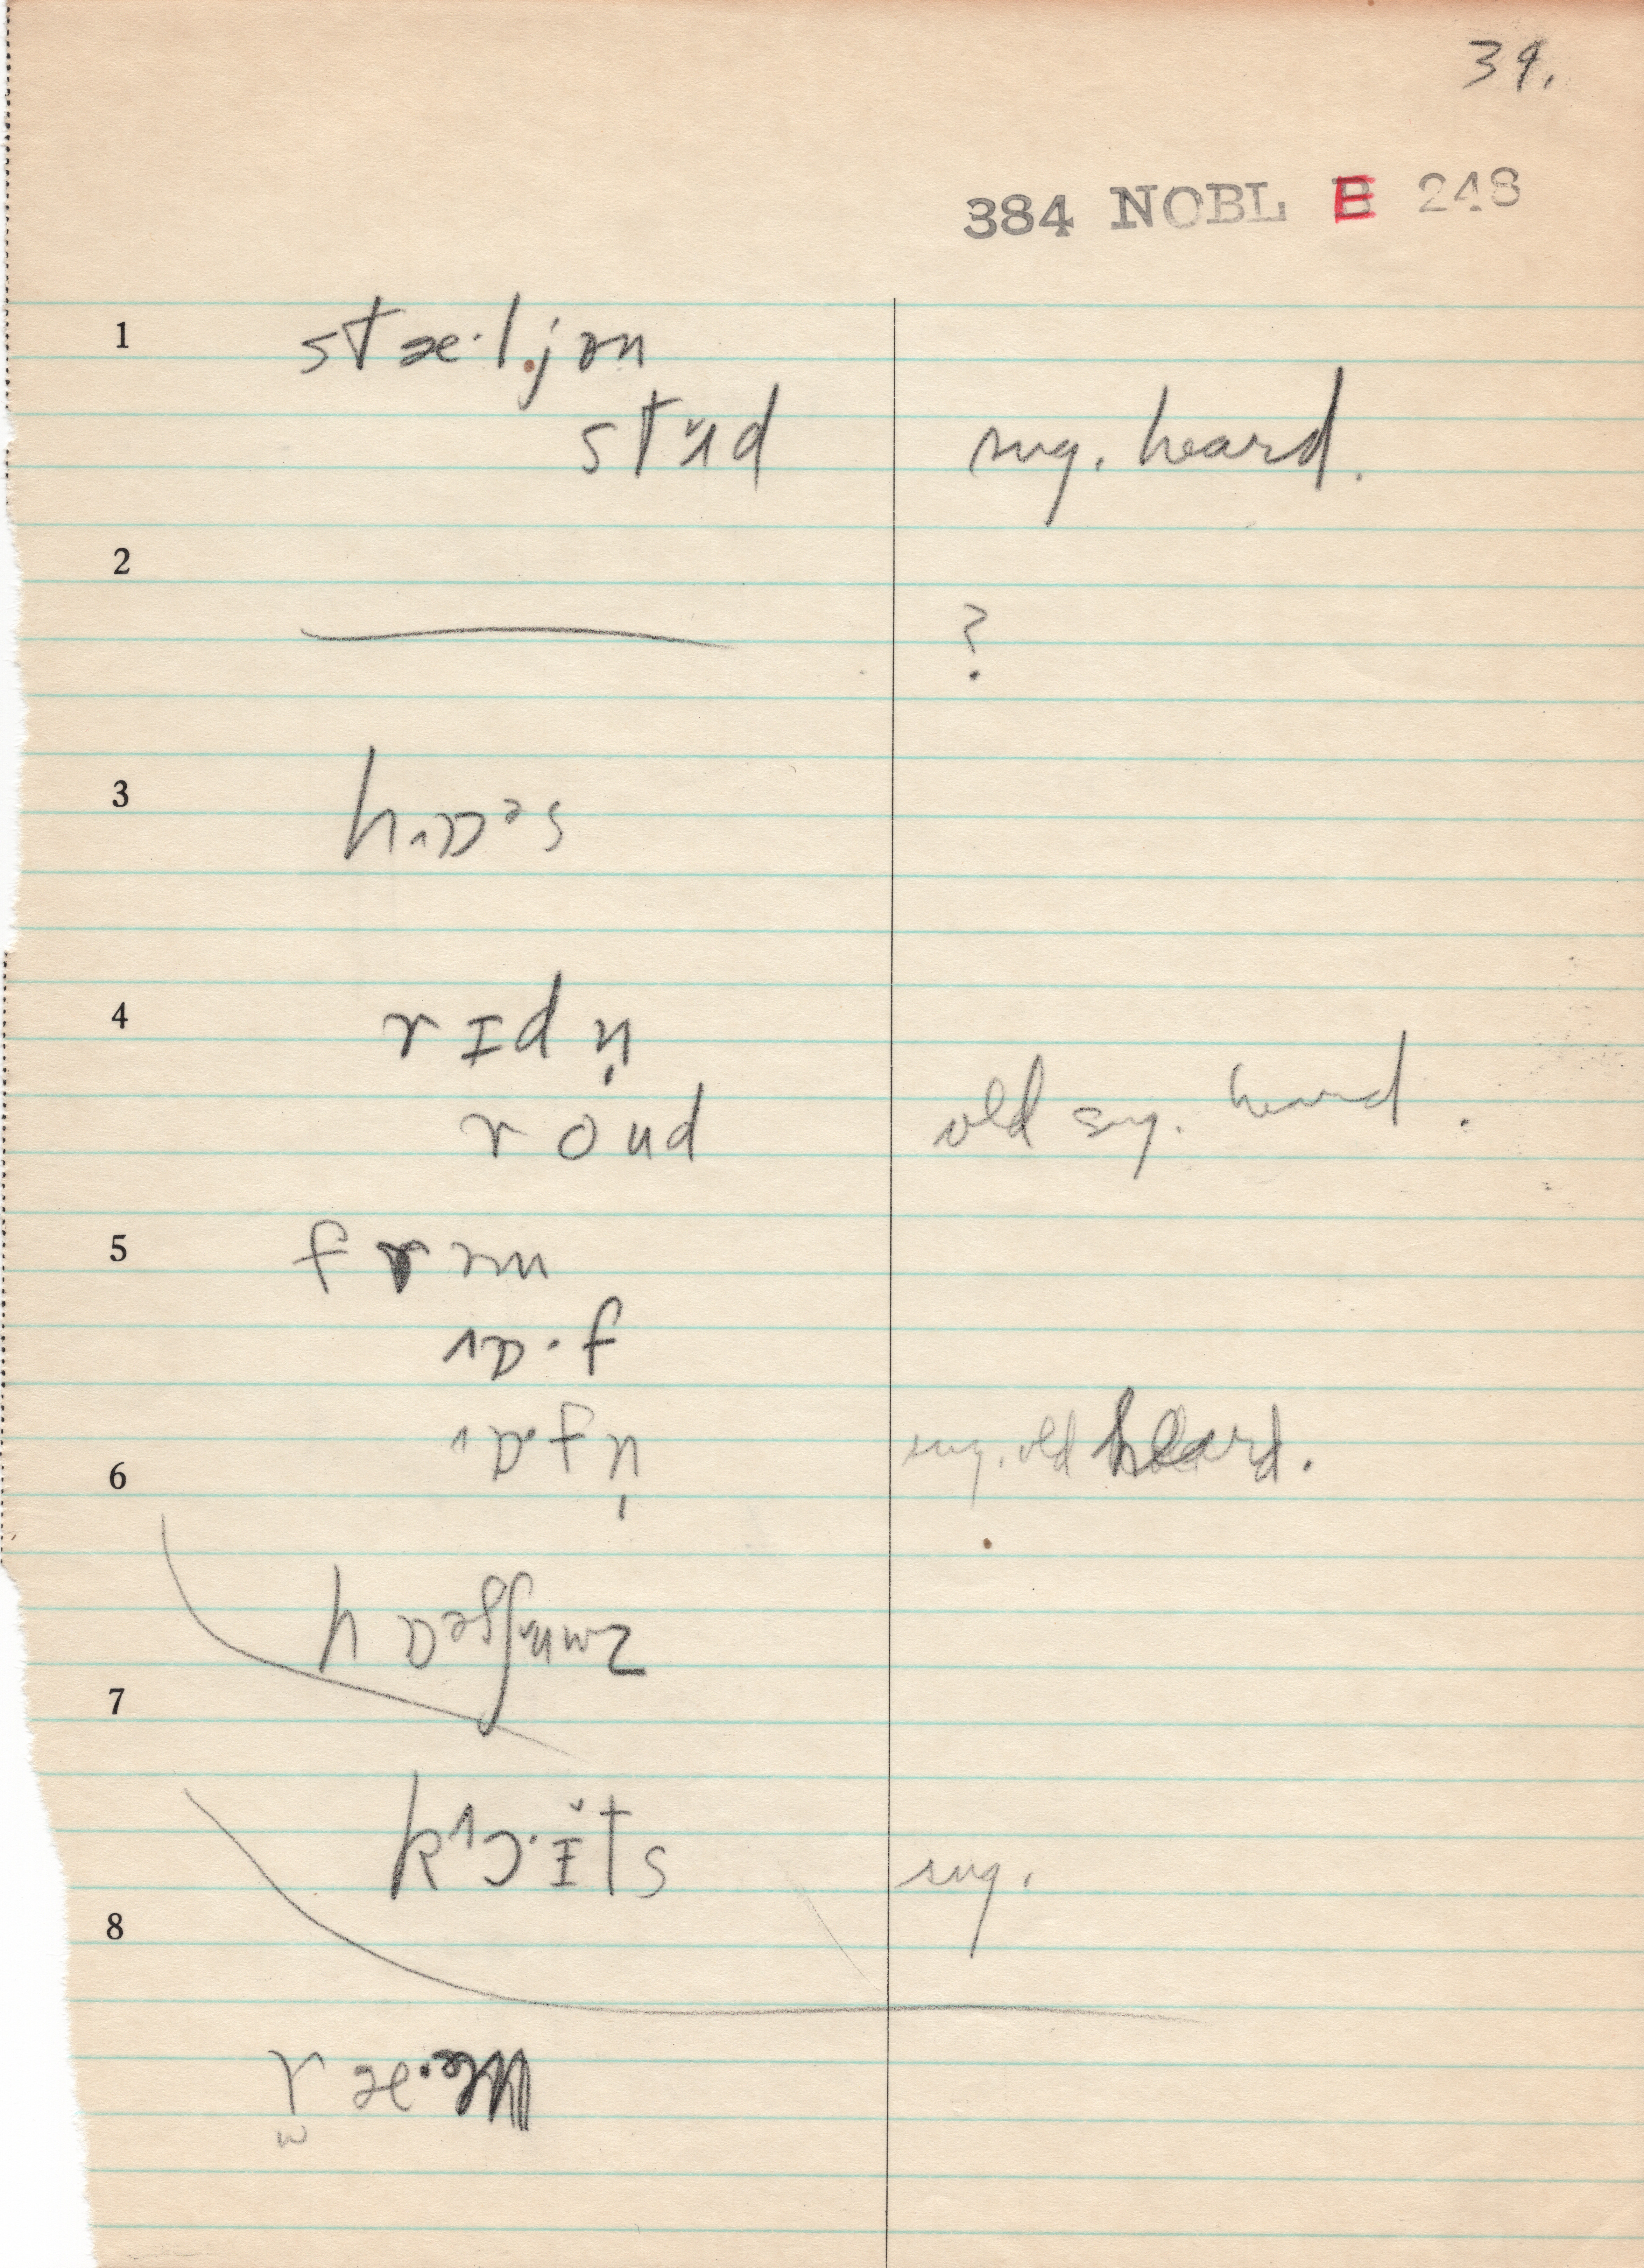 39.
384 NOBL B 248
1 stæ·ljən
stʉ̆d sug. heard.
2 ?
3 h˄ɒᵊs
4 rɪdn̩
roud old sug. heard.
5 frəm
˄ɒ·f
6 ˄ɒ·fn̩ sug. old heard.
7 hɒᵊʃʃʉ̆mz
8 k˄ɔ·ɪ̆ts sug.